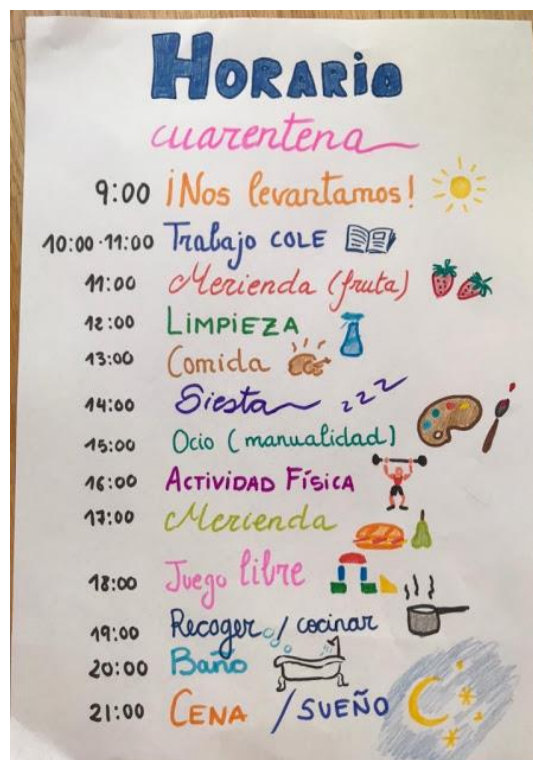 HORARIO
cuarentena
9:00 ¡Nos levantamos!
10:00-11:00 Trabajo COLE
11:00 Merienda (fruta)
12:00 LIMPIEZA
13:00 Comida
14:00 Siesta zzz
15:00 Ocio (manualidad)
16:00 ACTIVIDAD FÍSICA
17:00 Merienda
18:00 Juego libre
19:00 Recoger / cocinar
20:00 Baño
21:00 CENA / SUEÑO